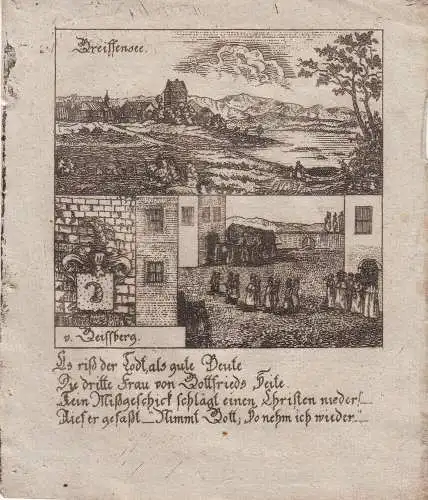 Greiffensee.
v. Geissberg.
Es riß der Todt, als gute Beute
Die dritte Frau von Gottfrieds Seite.
Kein Mißgeschick schlägt einen Christen nieder!
Rief er gefaßt „Nimmt Gott, so nehm ich wieder.“